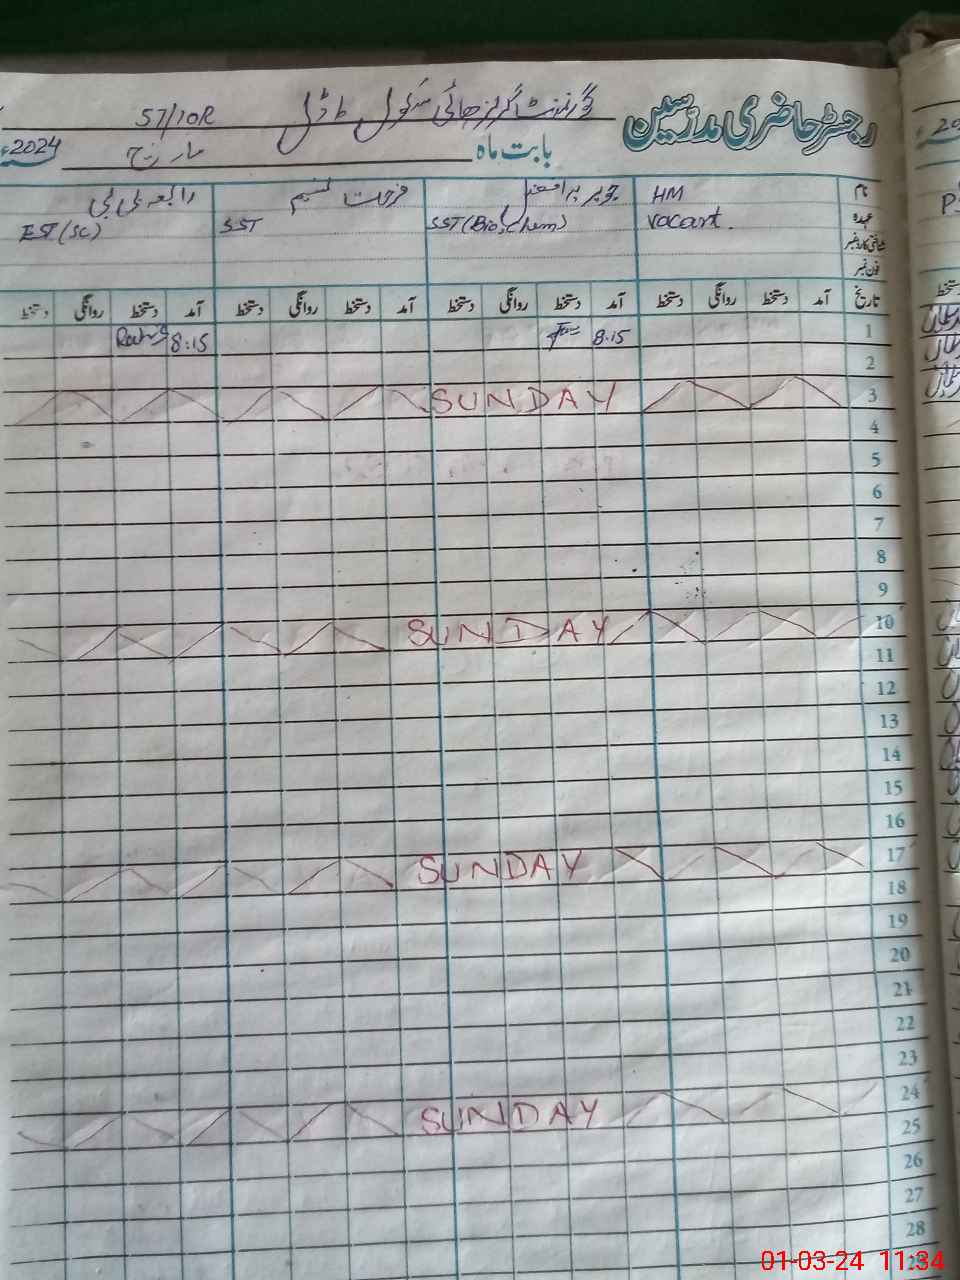 رجسٹر حاضری مدرسین
گورنمنٹ گرلز ہائی سکول ماڈل 57/10R
بابت ماہ مارچ 2024ء
نام HM فرحت رابعہ بی بی
عہدہ vacant. SST(Bio,Chem) SST EST(SC)
شناختی کارڈ نمبر
فون نمبر
تاریخ آمد دستخط روانگی دستخط آمد دستخط روانگی دستخط آمد دستخط روانگی دستخط آمد دستخط روانگی دستخط
1 8.15 8:15
2
3 SUNDAY
4
5
6
7
8
9
10 SUNDAY
11
12
13
14
15
16
17 SUNDAY
18
19
20
21
22
23
24 SUNDAY
25
26
27
28
29
01-03-24 11:34